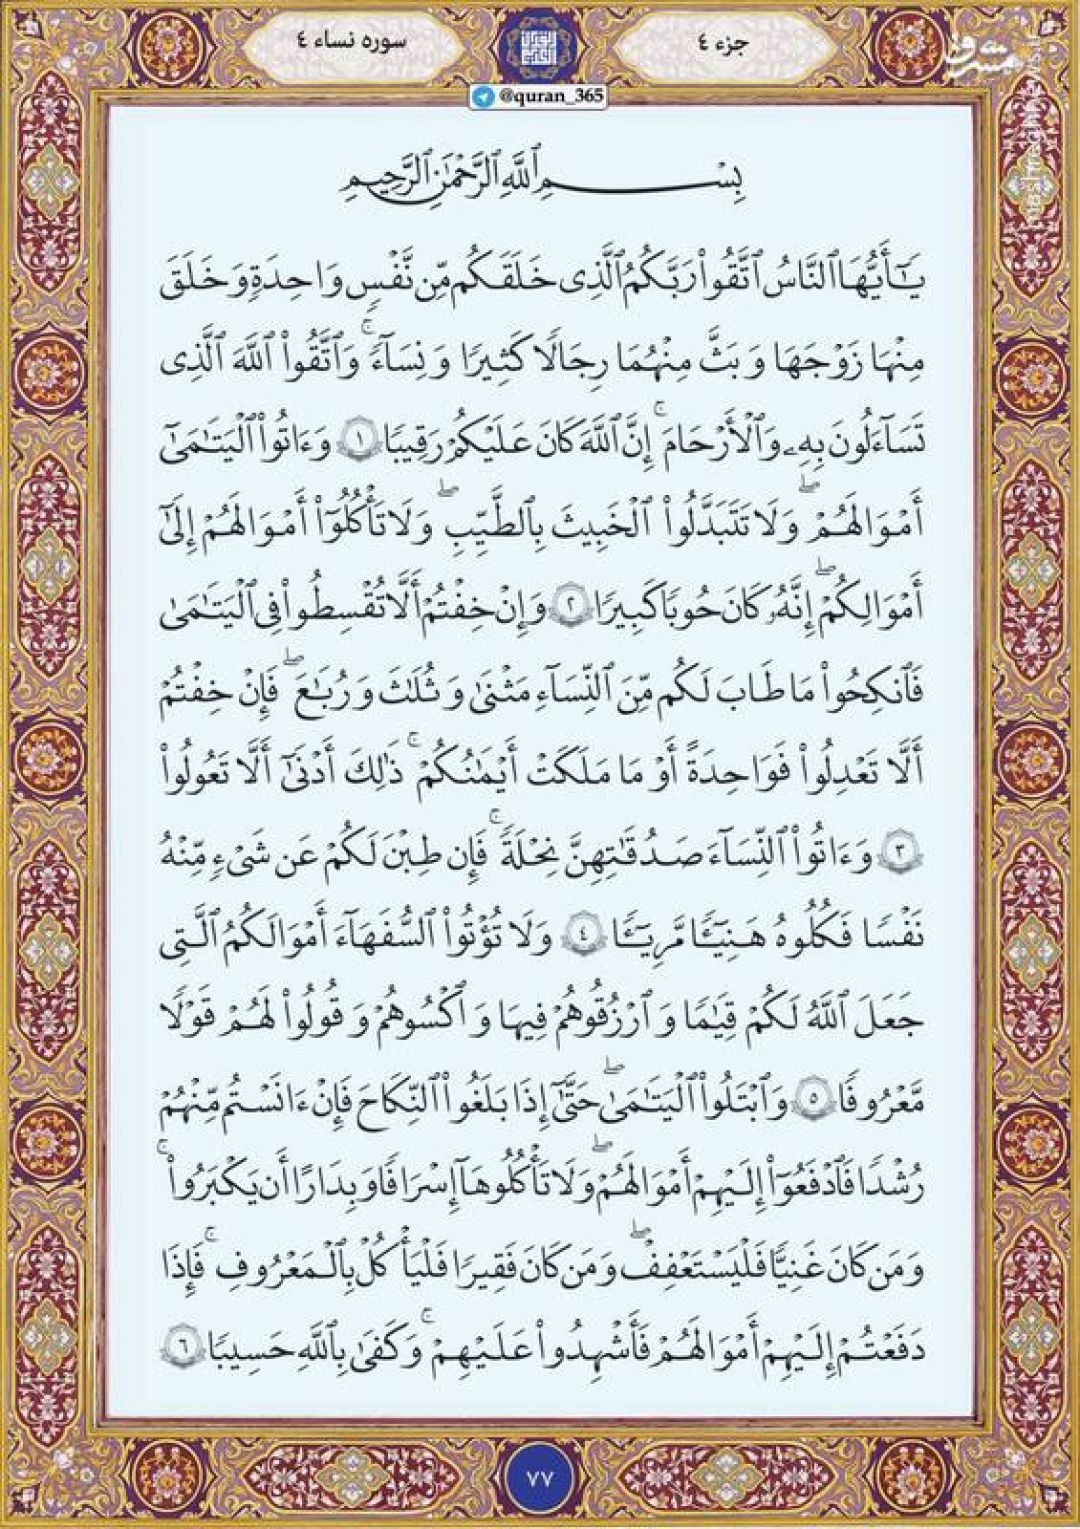 جزء ٤
سوره نساء ٤
@quran_365
مشرق
mashreghnews
بِسْمِ ٱللَّهِ ٱلرَّحْمَٰنِ ٱلرَّحِيمِ
يَٰٓأَيُّهَا ٱلنَّاسُ ٱتَّقُوا۟ رَبَّكُمُ ٱلَّذِى خَلَقَكُم مِّن نَّفْسٍ وَٰحِدَةٍ وَخَلَقَ
مِنْهَا زَوْجَهَا وَبَثَّ مِنْهُمَا رِجَالًا كَثِيرًا وَنِسَآءً ۚ وَٱتَّقُوا۟ ٱللَّهَ ٱلَّذِى
تَسَآءَلُونَ بِهِۦ وَٱلْأَرْحَامَ ۚ إِنَّ ٱللَّهَ كَانَ عَلَيْكُمْ رَقِيبًا ١ وَءَاتُوا۟ ٱلْيَتَٰمَىٰٓ
أَمْوَٰلَهُمْ ۖ وَلَا تَتَبَدَّلُوا۟ ٱلْخَبِيثَ بِٱلطَّيِّبِ ۖ وَلَا تَأْكُلُوٓا۟ أَمْوَٰلَهُمْ إِلَىٰٓ
أَمْوَٰلِكُمْ ۖ إِنَّهُۥ كَانَ حُوبًا كَبِيرًا ٢ وَإِنْ خِفْتُمْ أَلَّا تُقْسِطُوا۟ فِى ٱلْيَتَٰمَىٰ
فَٱنكِحُوا۟ مَا طَابَ لَكُم مِّنَ ٱلنِّسَآءِ مَثْنَىٰ وَثُلَٰثَ وَرُبَٰعَ ۖ فَإِنْ خِفْتُمْ
أَلَّا تَعْدِلُوا۟ فَوَٰحِدَةً أَوْ مَا مَلَكَتْ أَيْمَٰنُكُمْ ۚ ذَٰلِكَ أَدْنَىٰٓ أَلَّا تَعُولُوا۟
٣ وَءَاتُوا۟ ٱلنِّسَآءَ صَدُقَٰتِهِنَّ نِحْلَةً ۚ فَإِن طِبْنَ لَكُمْ عَن شَىْءٍ مِّنْهُ
نَفْسًا فَكُلُوهُ هَنِيٓـًٔا مَّرِيٓـًٔا ٤ وَلَا تُؤْتُوا۟ ٱلسُّفَهَآءَ أَمْوَٰلَكُمُ ٱلَّتِى
جَعَلَ ٱللَّهُ لَكُمْ قِيَٰمًا وَٱرْزُقُوهُمْ فِيهَا وَٱكْسُوهُمْ وَقُولُوا۟ لَهُمْ قَوْلًا
مَّعْرُوفًا ٥ وَٱبْتَلُوا۟ ٱلْيَتَٰمَىٰ حَتَّىٰٓ إِذَا بَلَغُوا۟ ٱلنِّكَاحَ فَإِنْ ءَانَسْتُم مِّنْهُمْ
رُشْدًا فَٱدْفَعُوٓا۟ إِلَيْهِمْ أَمْوَٰلَهُمْ ۖ وَلَا تَأْكُلُوهَآ إِسْرَافًا وَبِدَارًا أَن يَكْبَرُوا۟ ۚ
وَمَن كَانَ غَنِيًّا فَلْيَسْتَعْفِفْ ۖ وَمَن كَانَ فَقِيرًا فَلْيَأْكُلْ بِٱلْمَعْرُوفِ ۚ فَإِذَا
دَفَعْتُمْ إِلَيْهِمْ أَمْوَٰلَهُمْ فَأَشْهِدُوا۟ عَلَيْهِمْ ۚ وَكَفَىٰ بِٱللَّهِ حَسِيبًا ٦
٧٧